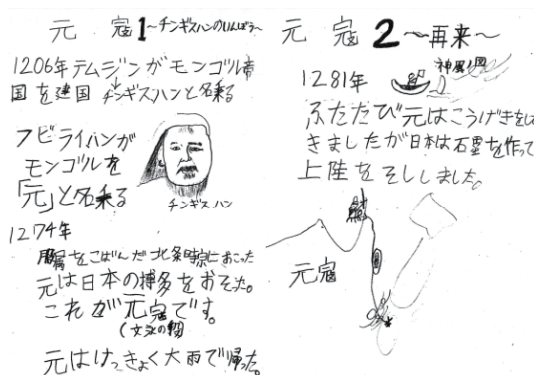 元 寇1〜チンギスハンのいんぼう〜
1206年テムジンがモンゴル帝
国を建国
チンギスハンと名乗る
フビライハンが
モンゴルを
「元」と名乗る
チンギスハン
1274年
をこばんだ北条時宗におこった
元は日本の博多をおそった。
これが元寇です。
(文永の役)
元はけっきょく大雨で帰った。
元 寇2〜再来〜
1281年
神風の図
ふたたび元はこうげきをし
きましたが日本は石塁を作って
上陸をそししました。
元寇